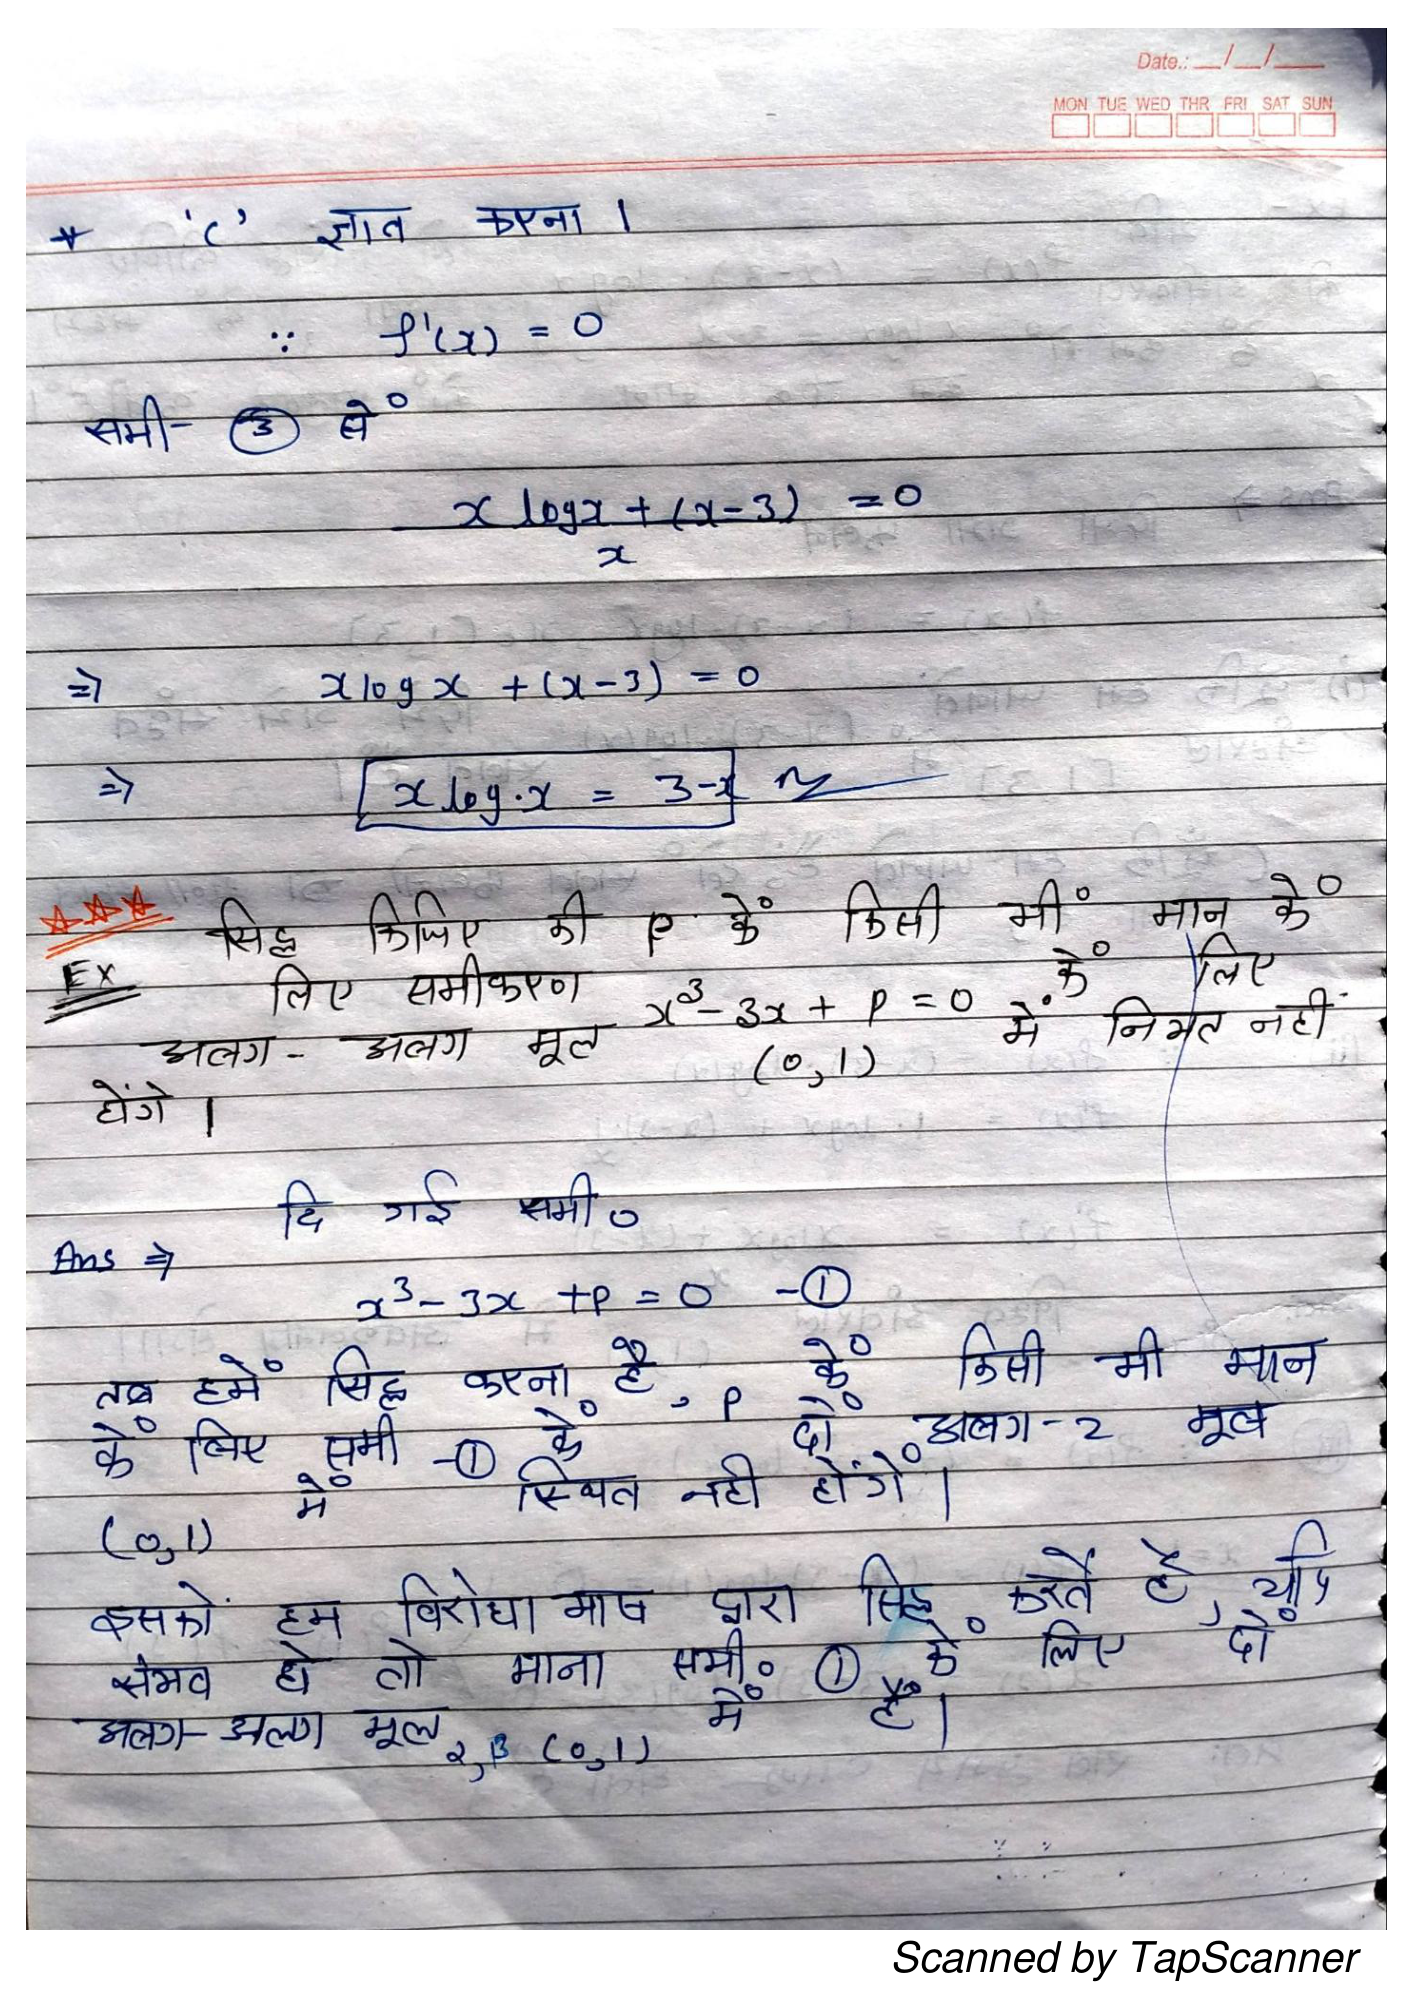 Date.: __/__/___
MON TUE WED THR FRI SAT SUN
* 'c' ज्ञात करना।
∵ f'(x) = 0
समी- ③ से०
x logx + (x-3) = 0
x
⇒ x log x + (x-3) = 0
⇒ x log.x = 3-x
सिद्ध किजिए की P के किसी भी मान के
Ex लिए समीकरण x³-3x + P = 0 के लिए
अलग - अलग मूल (0,1) में नियत नहीं
होंगे।
दि गई समी०
Ans ⇒
x³- 3x +P = 0 -①
तब हमें सिद्ध करना है, P के किसी भी मान
के लिए समी -① के दो अलग-2 मूल
(0,1) में स्थित नही होंगें।
इसकों हम विरोधाभाष द्वारा सिद्ध करतें है, यदि
संभव हो तो माना समी० ① के लिए दो
अलग-अलग मूल α,β (0,1) में है।
Scanned by TapScanner